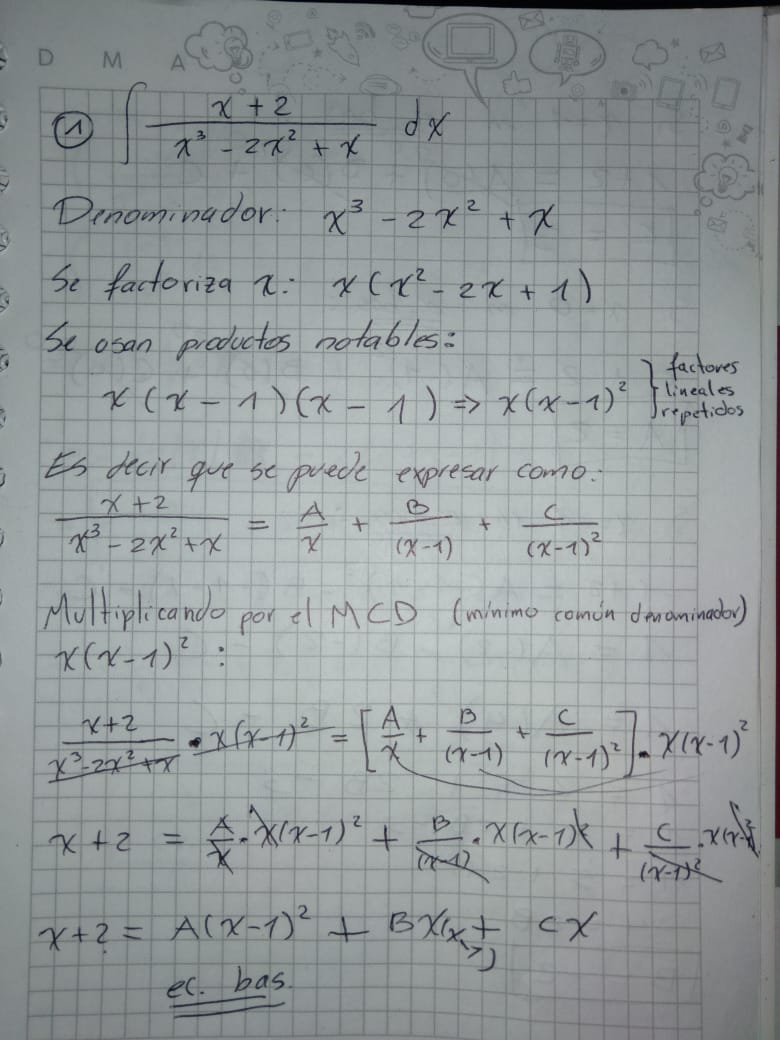 D M A
① ∫ (x + 2)/(x³ - 2x² + x) dx
Denominador: x³ - 2x² + x
Se factoriza x: x(x² - 2x + 1)
Se usan productos notables:
x(x - 1)(x - 1) ⇒ x(x-1)² } factores lineales repetidos
Es decir que se puede expresar como:
(x+2)/(x³ - 2x² + x) = A/x + B/(x-1) + C/(x-1)²
Multiplicando por el MCD (mínimo común denominador)
x(x-1)² :
(x+2)/(x³-2x²+x) • x(x-1)² = [A/x + B/(x-1) + C/(x-1)²] • x(x-1)²
x + 2 = A/x · x(x-1)² + B/(x-1) · x(x-1)² + C/(x-1)² · x(x-1)²
x+2 = A(x-1)² + Bx(x-1) + Cx
ec. bas.